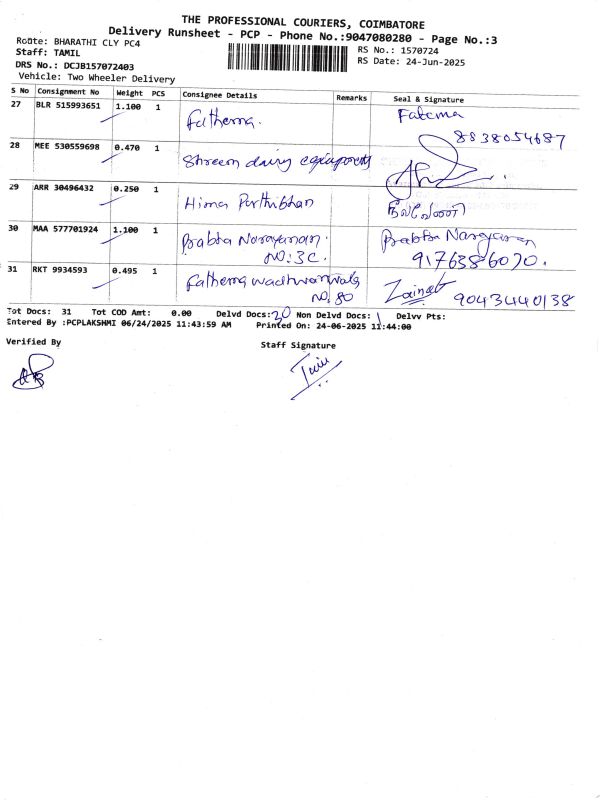 THE PROFESSIONAL COURIERS, COIMBATORE
Delivery Runsheet - PCP - Phone No.:9047080280 - Page No.:3
Route: BHARATHI CLY PC4
RS No.: 1570724
Staff: TAMIL
RS Date: 24-Jun-2025
DRS No.: DCJB157072403
Vehicle: Two Wheeler Delivery
S No Consignment No Weight PCS Consignee Details Remarks Seal & Signature
27 BLR 515993651 1.100 1 Fathema. Fatema
8838054687
28 MEE 530559698 0.470 1 Shreem dairy
29 ARR 30496432 0.250 1 Hima Parthibhan
30 MAA 577701924 1.100 1 Prabha Narayanan. Prabha Narayanan
NO: 3C. 9176386070.
31 RKT 9934593 0.495 1 Fathema Zainab
NO. 80 9043440138
Tot Docs: 31 Tot COD Amt: 0.00 Delvd Docs: 30 Non Delvd Docs: 1 Delvv Pts:
Entered By :PCPLAKSHMI 06/24/2025 11:43:59 AM Printed On: 24-06-2025 11:44:00
Verified By
Staff Signature